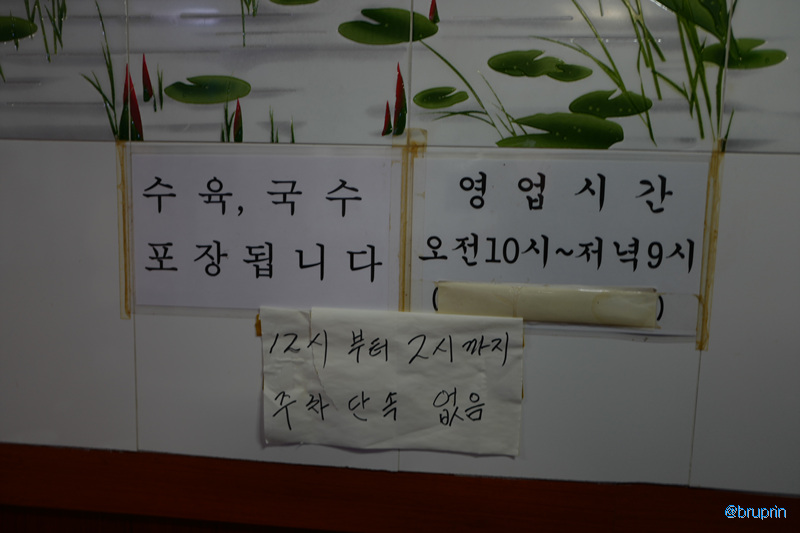 수육, 국수
포장됩니다
영업시간
오전10시~저녁9시
(         )
12시 부터 2시까지
주차 단속 없음
@bruprin